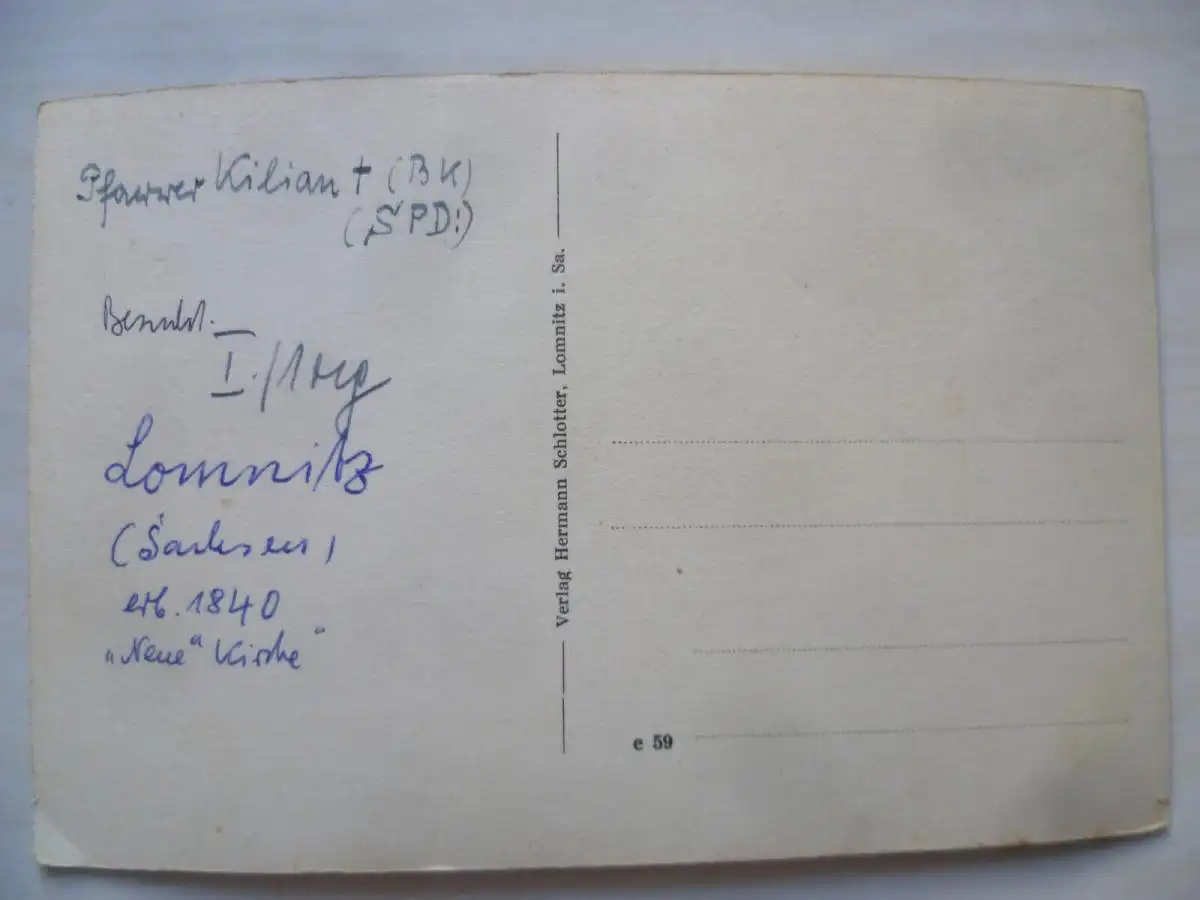 Pfarrer Kilian † (BK)
(SPD!)
Besucht.
I./
Lomnitz
(Sachsen)
erb. 1840
„Neue" Kirche"
Verlag Hermann Schlotter, Lomnitz i. Sa.
e 59